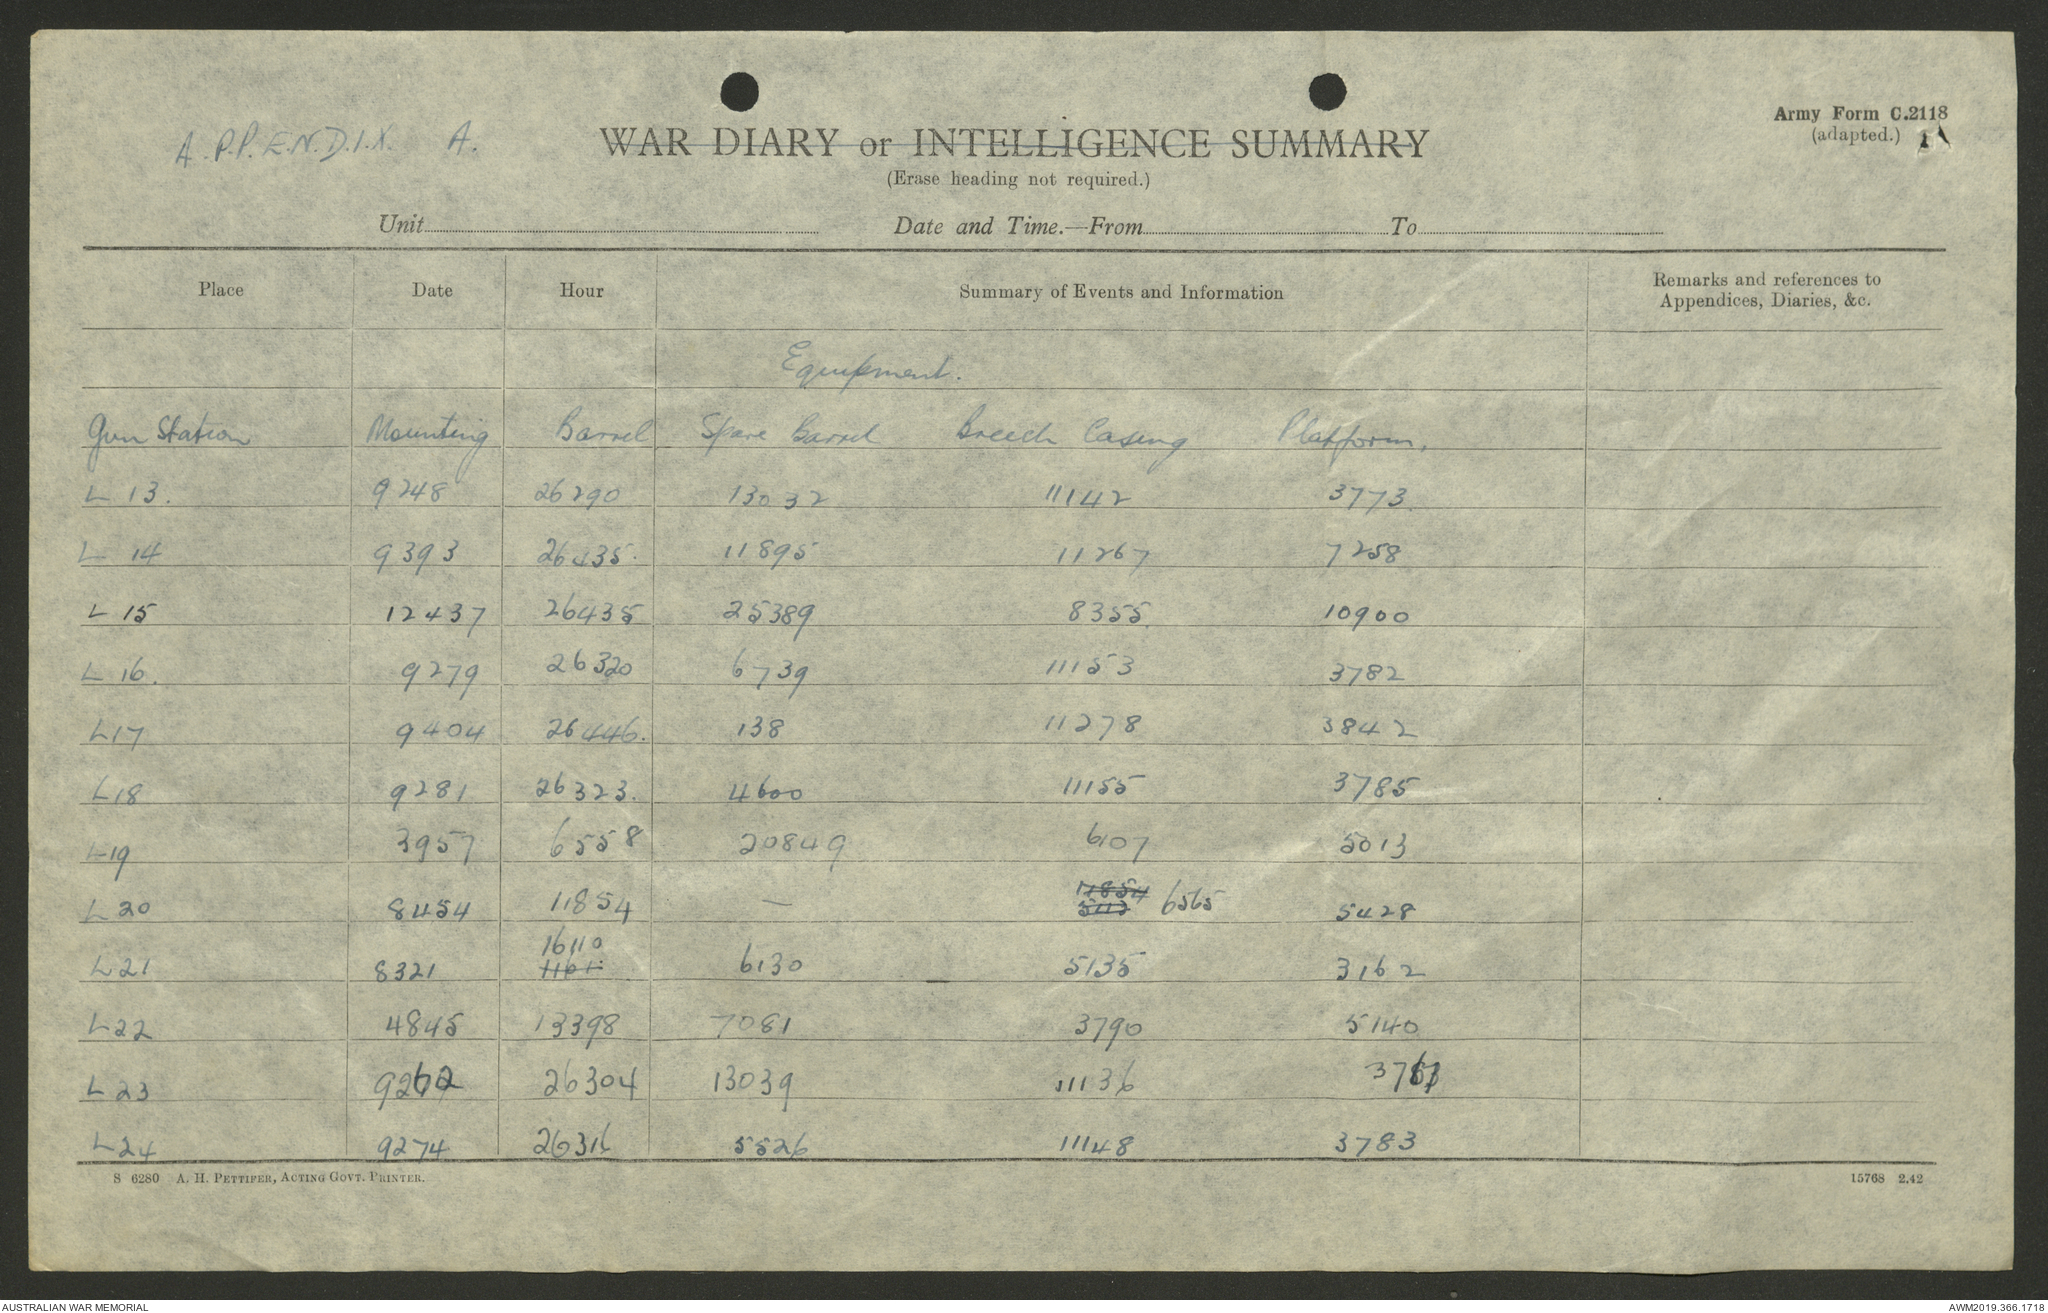 A.P.P.E.N.D.I.X. A.
WAR DIARY or INTELLIGENCE SUMMARY
(Erase heading not required.)
Army Form C.2118
(adapted.)
Unit Date and Time.—From To
Place Date Hour Summary of Events and Information Remarks and references to
Appendices, Diaries, &c.
Equipment.
Gun Station Mounting Barrel Spare Barrel Breech Casing Platform.
L 13. 9248 26290 13032 11142 3773
L 14 9393 26435. 11895 11267 7258
L 15 12437 26435 25389 8355 10900
L 16. 9279 26320 6739 11153 3782
L17 9404 26446. 138 11278 3842
L18 9281 26323. 4600 11155 3785
L19 3957 6558 20849 6107 5013
L20 8454 11854 — 11854 5113 6565 5428
L21 8321 16110 6130 5135 3162
L22 4845 13398 7081 3790 5140
L23 9262 26304 13039 11136
L24 9274 26316 5526 11148 3783
S 6280 A. H. PETTIFER, ACTING GOVT. PRINTER.
15768 2.42
AUSTRALIAN WAR MEMORIAL
AWM2019.366.1718